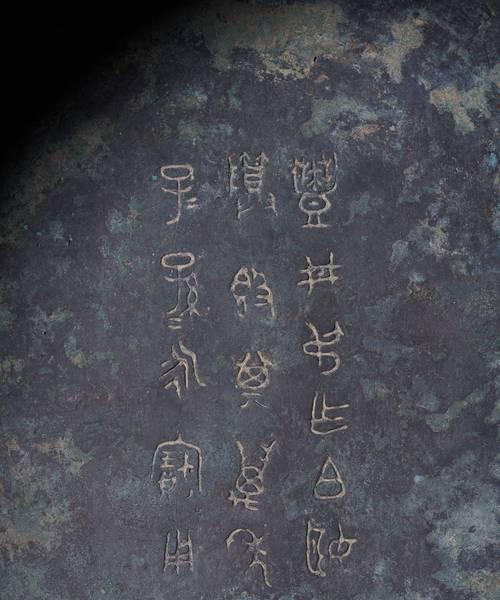 豐井叔乍白姬
尊𣪘其萬年
子子孫孫永寶用